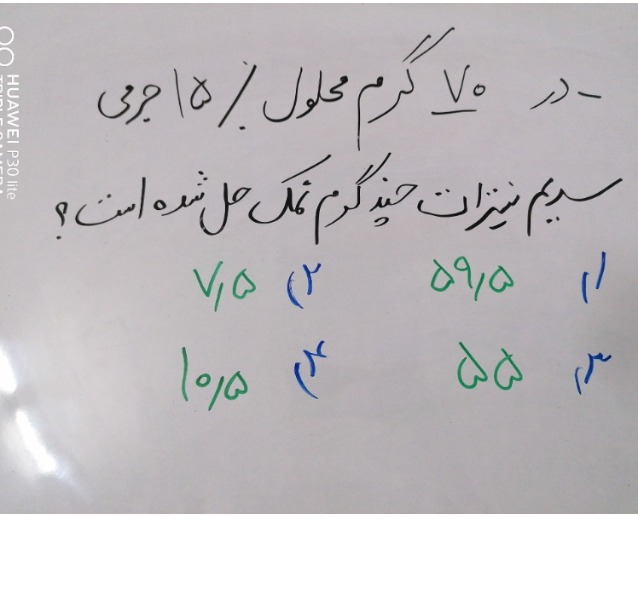 - در ۷۰ گرم محلول ٪ ۱۵ جرمی
سدیم نیترات چند گرم نمک حل شده است؟
۱) ۵۹٫۵ ۲) ۷٫۵
۳) ۵۵ ۴) ۱۰٫۵
HUAWEI P30 lite